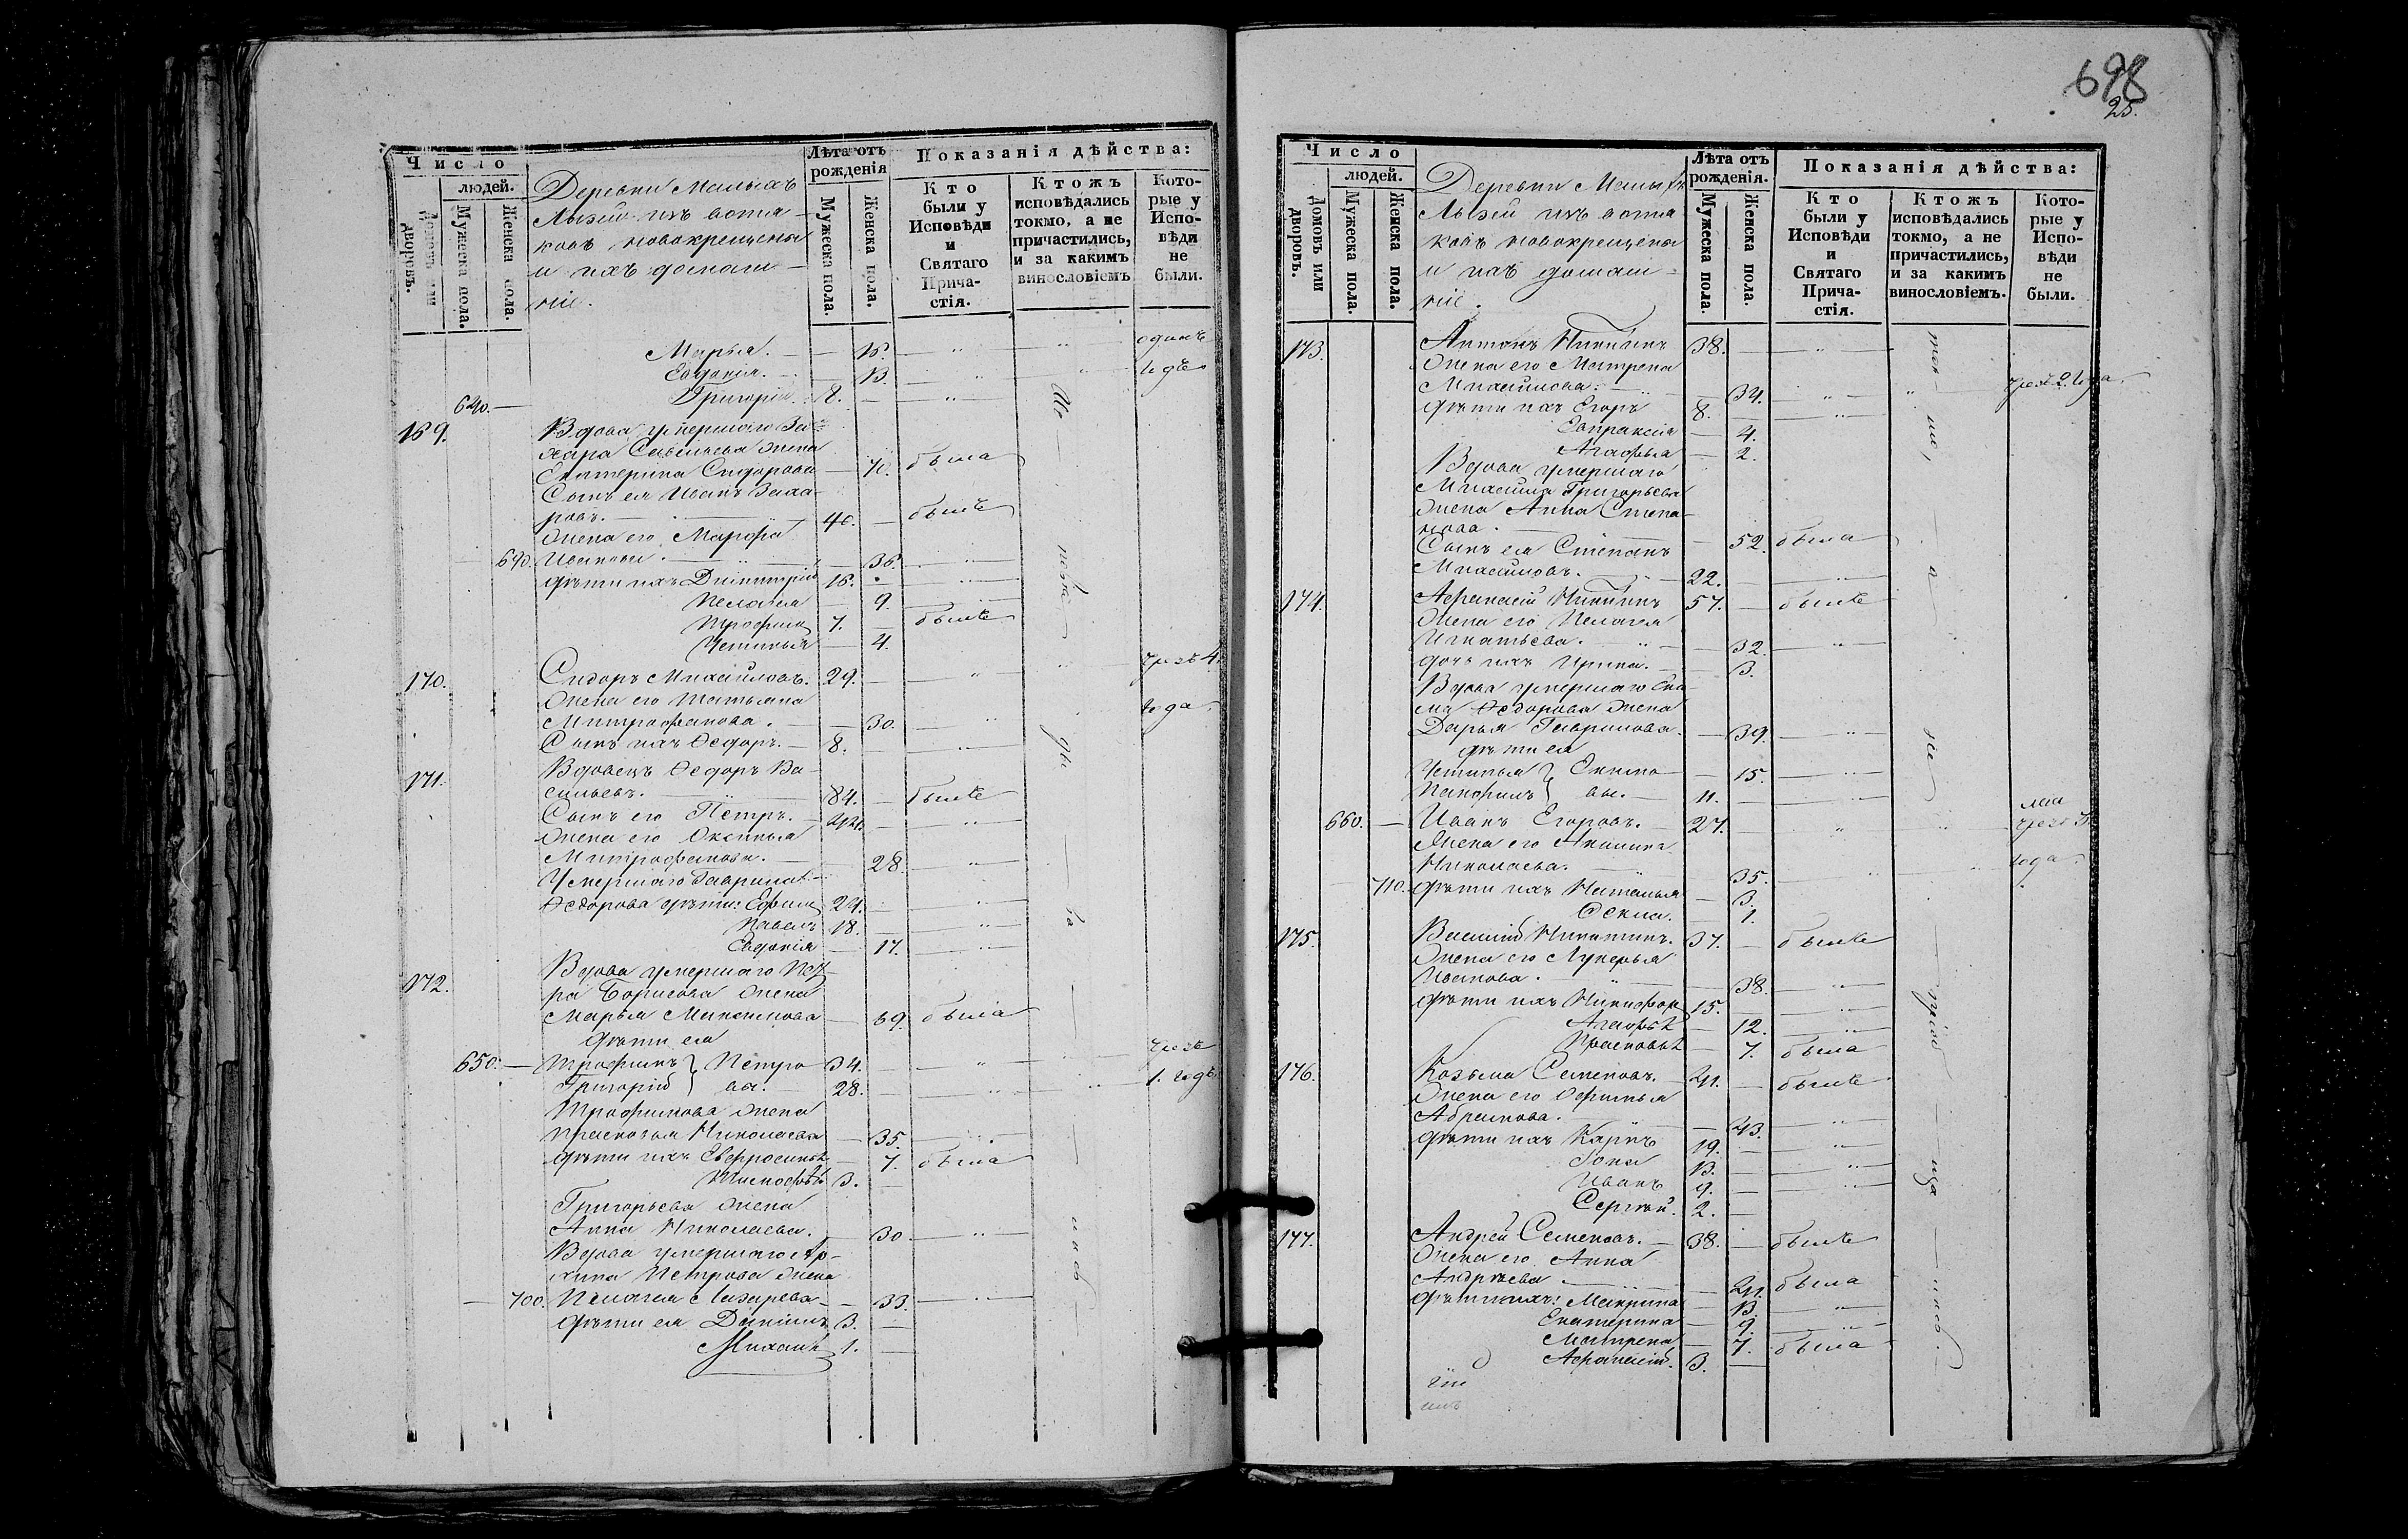 Число
людей.
Домовъ или дворовъ.
Мужеска пола.
Женска пола.
Деревни Малыхъ
Лызей изъ вотя-
ковъ новокрещены
и ихъ домаш-
нiе.
Лѣта отъ рожденiя
Мужеска пола.
Женска пола.
Показанiя дѣйства:
Кто были у Исповѣди и Святаго Прича-стiя.
Ктожъ исповѣдались токмо, а не причастились, и за какимъ винословiемъ
Кото-рые у Испо-вѣди не были.
Марья. — — 15. — " — " одинъ
Евдокiя. — — 13. — " — " годъ
640. — Григорiй. 8. — — " —
169. Вдова умершаго За-
хара Савельева жена
Екатерина Сидорова — 70. была
Сынъ ея Иванъ Заха-
ровъ. — 40. — былъ
Жена его Марфа
690. Иванова. — — 36. — " —
Дѣти ихъ Димитрiй 16. — " —
Пелагея — 9. — " —
Трофимъ 7. — былъ
Устинья — 4.
170. Сидоръ Михайловъ. 29. — — " — " чрезъ 4.
Жена его Татьяна
Митрофанова. — — 30. — " — " года
Сынъ ихъ Ѳедоръ. — 8. — — " —
171. Вдовецъ Ѳедоръ Ва-
сильевъ. — 84. — былъ
Сынъ его Петръ. — 42. — — " —
Жена его Оксинья
Митрофанова. — — 28. — " —
Умершаго Гаврила
Ѳедорова дѣти: Ефимъ 24. — — " —
Павелъ 18. — — " —
Евдокiя — 17. — " —
172. Вдова умершаго Пет-
ра Борисова жена
Марья Максимова — 69. была
дѣти ея
650. — Трофимъ } Петро- 34. — — " — чрезъ
Григорiй } вы. — 28. — — " — " 1. годъ
Трофимова жена
Прасковья Николаева — 35. — " —
Дѣти ихъ Евфросинья — 7. была
Тимофѣй 3. —
Григорьева жена
Анна Николаева. — 30. — " —
Вдова умершаго Ар-
хипа Петрова жена
700. Пелагея Лазарева — — 33. — " —
Дѣти ея Данiилъ 3. —
Михаилъ 1. —
698
25.
Число
людей.
Домовъ или дворовъ.
Мужеска пола.
Женска пола.
Деревни Малыхъ
Лызей изъ вотя-
ковъ новокрещены
и ихъ домаш-
нiе.
Лѣта отъ рожденiя.
Мужеска пола.
Женска пола.
Показанiя дѣйства:
Кто были у Исповѣди и Святаго Прича-стiя.
Ктожъ исповѣдались токмо, а не причастились, и за какимъ винословiемъ.
Кото-рые у Испо-вѣди не были.
173. Антонъ Никитинъ 38. — — " —
Жена его Матрена
Михайлова. — — 34. — " — " чрезъ 2. года
Дѣти ихъ Егоръ 8. — — " —
Евпраксiя — 4.
Агафья — 2.
Вдова умершаго
Михаила Григорьева
жена Анна Степа-
нова. — — 52. была
Сынъ ея Степанъ
Михайловъ. — 22. — — " —
174. Афанасiй Никитинъ 57. — былъ
Жена его Пелагея
Игнатьева. — — 32. — " —
дочь ихъ Ирина. — — 3.
Вдова умершаго
Ѳедорова жена
Дарья Гаврилова. — 39. — " —
дѣти ея
Устинья } — 15. — " —
Панфилъ } вы. — 11. — — " —
660. — Иванъ Егоровъ. — 27. — " — " чрезъ 3
Жена его Акилина
Николаева. — — 35. — " — " года
710. Дѣти ихъ Наталья — 3.
Ѳекла. — 1.
175. Василiй Никитинъ. 37. — былъ
Жена его Лукерья
Иванова. — — 38. — " —
Дѣти ихъ Никифоръ 15. — — " —
Агафья — 12. — " —
Прасковья — 7. была
176. Козьма Семеновъ. — 41. — былъ
Жена его Ефимья
Абрамова. — — 43. — " —
Дѣти ихъ Карпъ 19. — — " —
Iона 13. — — " —
Иванъ 9. — — " —
Сергѣй. 2. —
177. Андрей Семеновъ. — 38. — былъ
Жена его Анна
Андреева. — — 41. была
Дѣти ихъ: Макрина — 13. — " —
Екатерина — 9. — " —
Матрена — 7. была
Афанасiй. 3. —